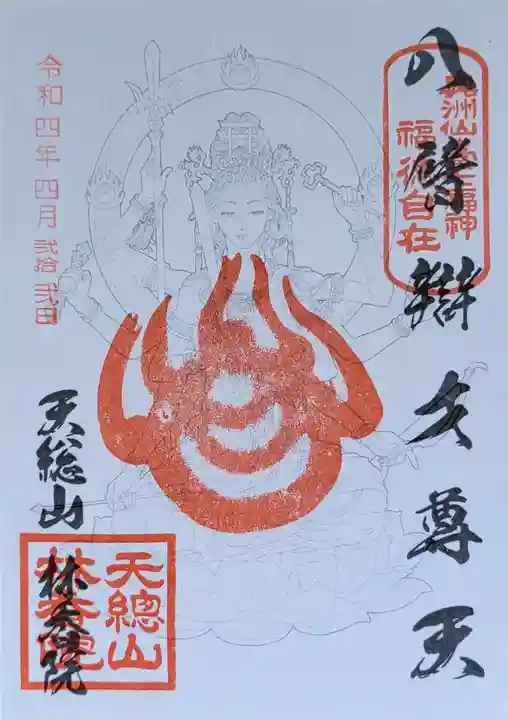 奥洲仙臺七福神
福徳自在
八臂辯才尊天
令和四年四月弐拾弐日
天総山
林香院
天總山
林香院